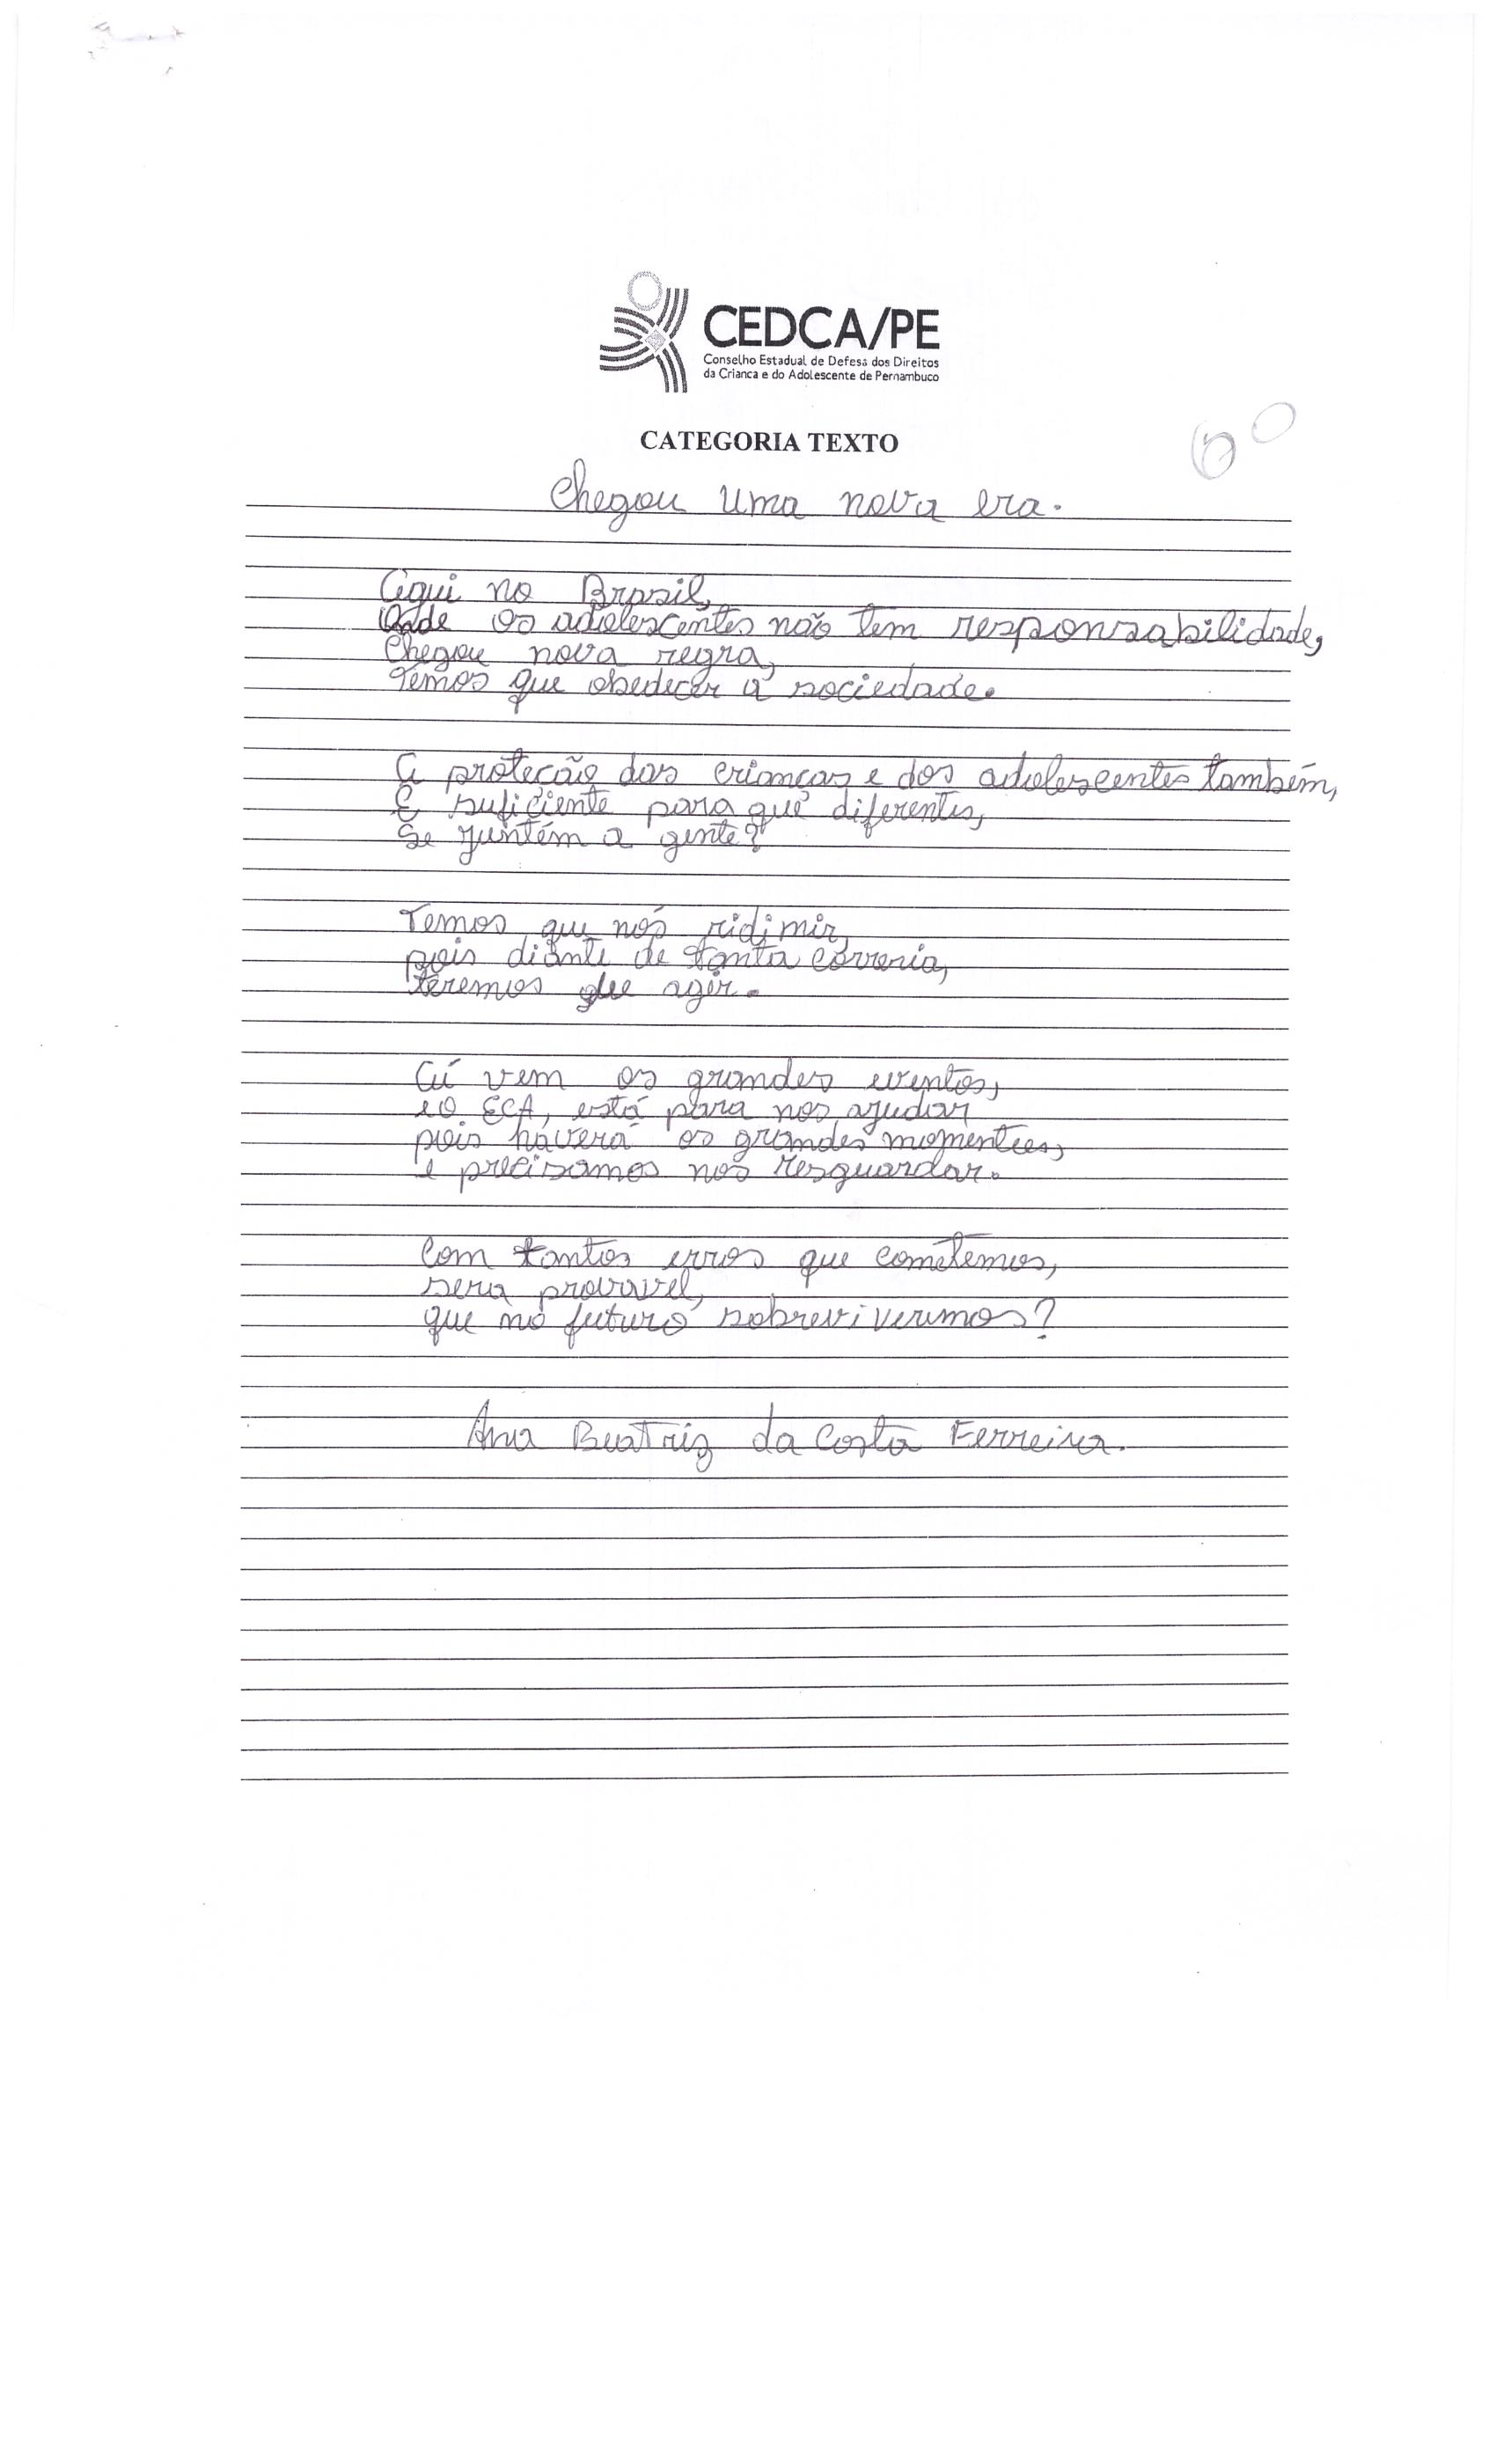 CEDCA/PE
Conselho Estadual de Defesa dos Direitos
da Crianca e do Adolescente de Pernambuco
CATEGORIA TEXTO
6º
Chegou uma nova era.
Aqui no Brasil,
Onde os adolescentes não tem responsabilidade,
Chegou nova regra,
Temos que obedecer a sociedade.
A proteção das crianças e dos adolescentes também,
É suficiente para que diferentes,
Se juntem a gente?
Temos que nós ridimir,
pois diante de tanta correria,
teremos que agir.
Aí vem os grandes eventos,
e o ECA, está para nos ajudar
pois haverá os grandes momentos,
e precisamos nos resguardar.
Com tantos erros que cometemos,
sera provavel,
que no futuro sobreviveremos?
Ana Beatriz da Costa Ferreira.